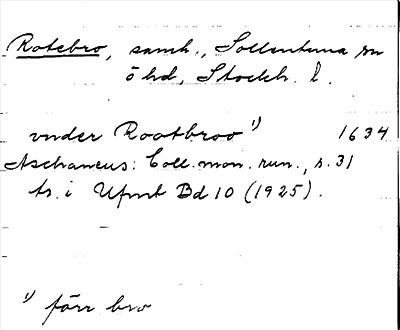 Rotebro, samh., Sollentuna sn
ö hd, Stockh. l.
vnder Rootbroo 1) 1634
Aschaneus: Coll. mon. run., s. 31
tr. i Ufmt Bd 10 (1925).
1) förr bro